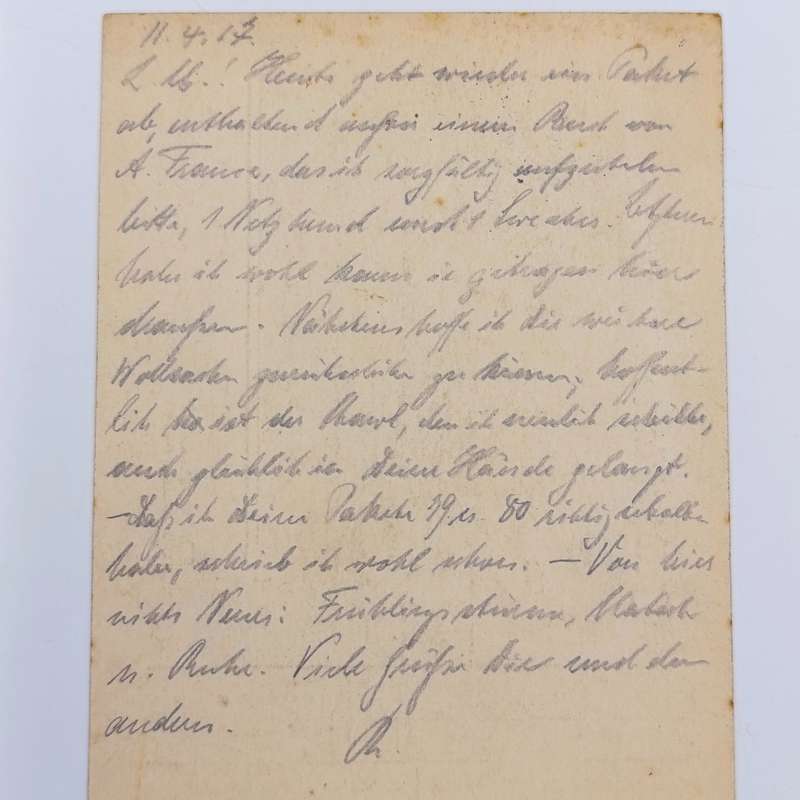 11.4.17.
L. M.! Heute geht wieder ein Paket
ab, enthaltend außer einem Band von
A. France, das ich sorgfältig aufzuheben
bitte, 1 Netzhemd und 1 Sweater. Letzteren
habe ich wohl kaum je getragen hier
draußen. Nächstens hoffe ich Dir weitere
Wollsachen zurückschicken zu können; hoffent-
lich ist der Shawl, den ich neulich schickte,
auch glücklich in Deine Hände gelangt.
— Daß ich Deine Pakete 79 u. 80 richtig erhalten
habe, schrieb ich wohl schon. — Von hier
nichts Neues: Frühlingsstürme,
u. Ruhe. Viele Grüße Dir und den
andern.
R.